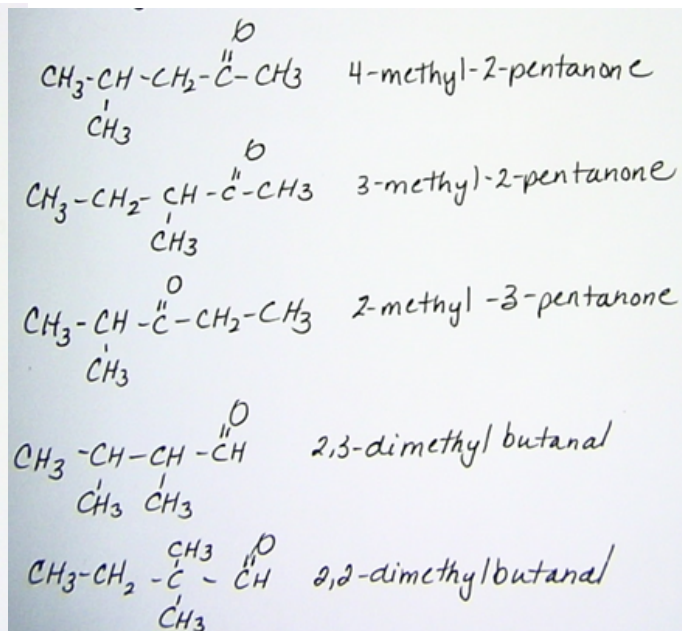 O
CH3-CH-CH2-C-CH3 4-methyl-2-pentanone
CH3
O
CH3-CH2-CH-C-CH3 3-methyl-2-pentanone
CH3
O
CH3-CH-C-CH2-CH3 2-methyl-3-pentanone
CH3
O
CH3-CH-CH-CH 2,3-dimethyl butanal
CH3 CH3
CH3 O
CH3-CH2-C-CH 2,2-dimethylbutanal
CH3